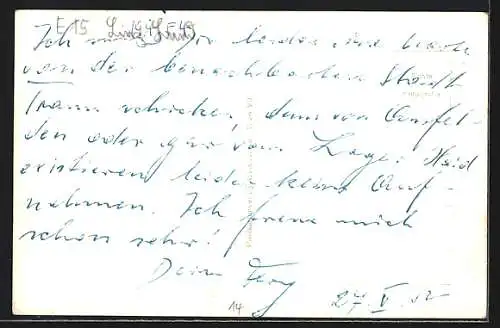 E 15 Linz Land
Ich muß Dir leider eine Karte
von der benachbarten Stadt
Traun schicken, denn von Ansfel-
den oder gar vom Lager Haid
existieren leider keine Auf-
nahmen. Ich freue mich
schon sehr!
Dein
27. V.
14